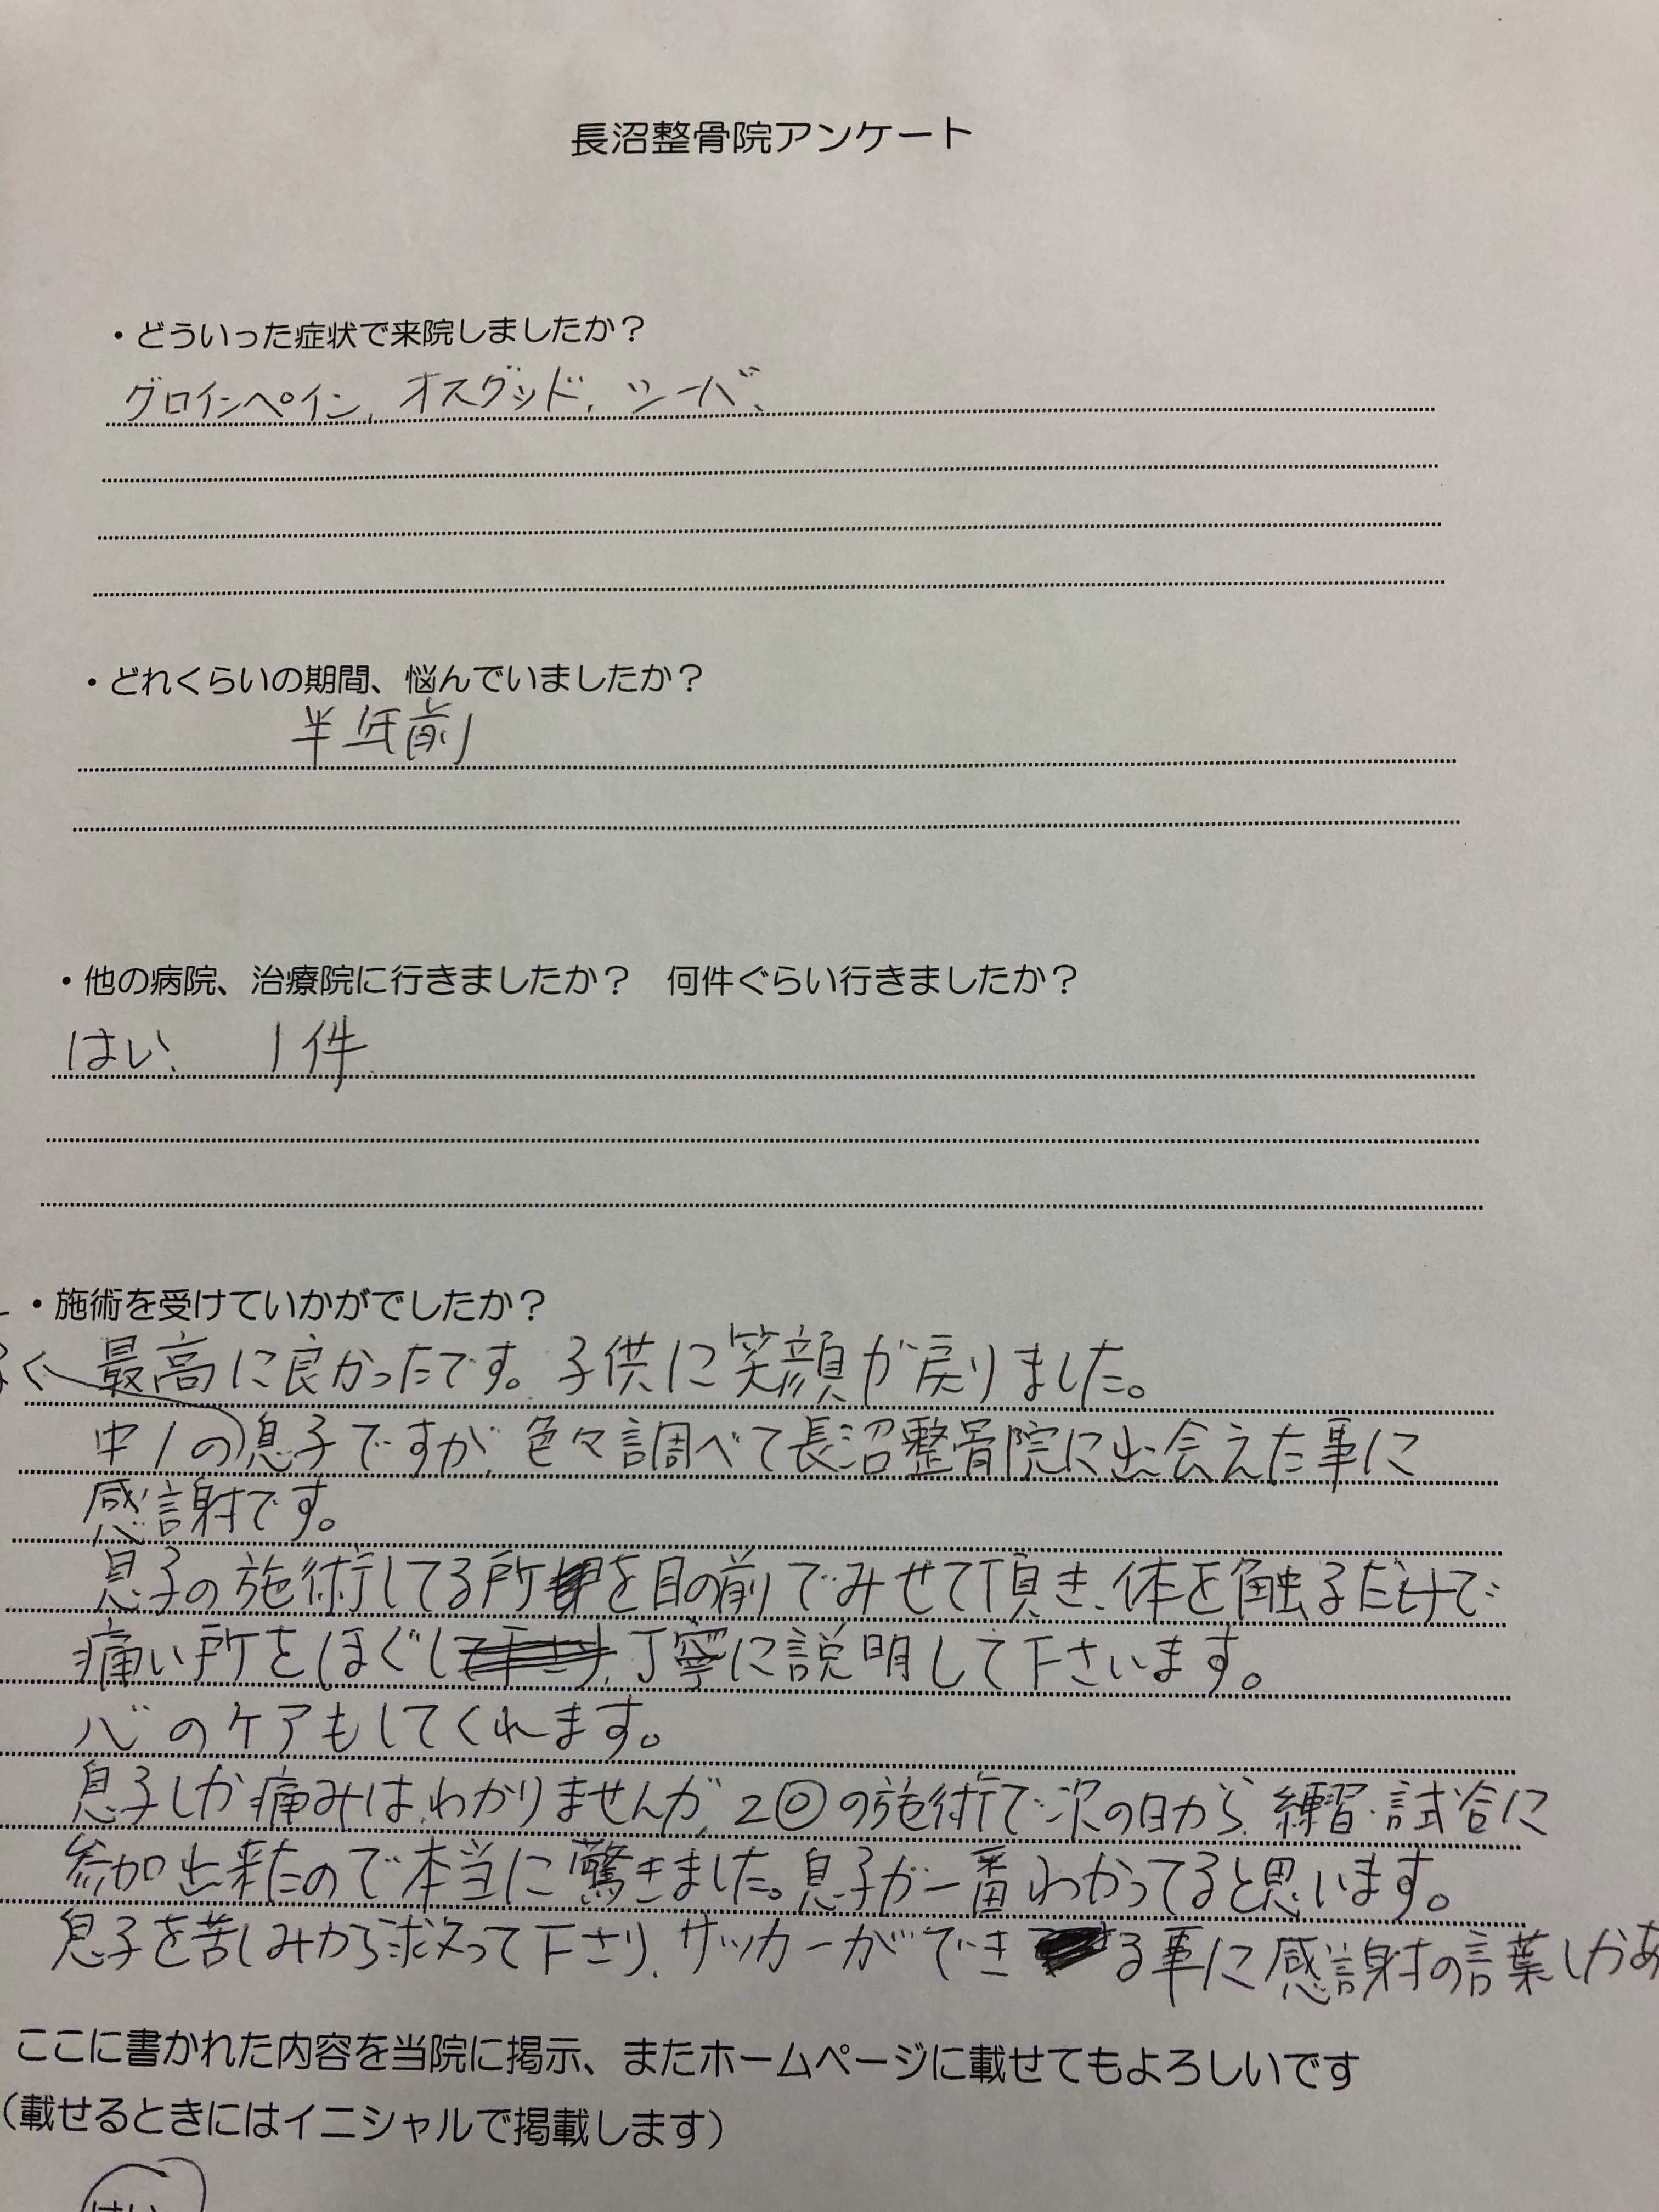 長沼整骨院アンケート
・どういった症状で来院しましたか？
グロインペイン、オスグッド、シーバ、
・どれくらいの期間、悩んでいましたか？
半年前
・他の病院、治療院に行きましたか？　何件ぐらい行きましたか？
はい、　1件
・施術を受けていかがでしたか？
最高に良かったです。子供に笑顔が戻りました。
中1の息子ですが、色々調べて長沼整骨院に出会えた事に
感謝です。
息子の施術してる所を目の前でみせて頂き、体を触るだけで
痛い所をほぐし、丁寧に説明して下さいます。
心のケアもしてくれます。
息子しか痛みはわかりませんが、2回の施術で次の日から、練習・試合に
参加出来たので本当に驚きました。息子が一番わかってると思います。
息子を苦しみから救って下さり、サッカーができる事に感謝の言葉しかあ
ここに書かれた内容を当院に掲示、またホームページに載せてもよろしいです
（載せるときにはイニシャルで掲載します）
はい